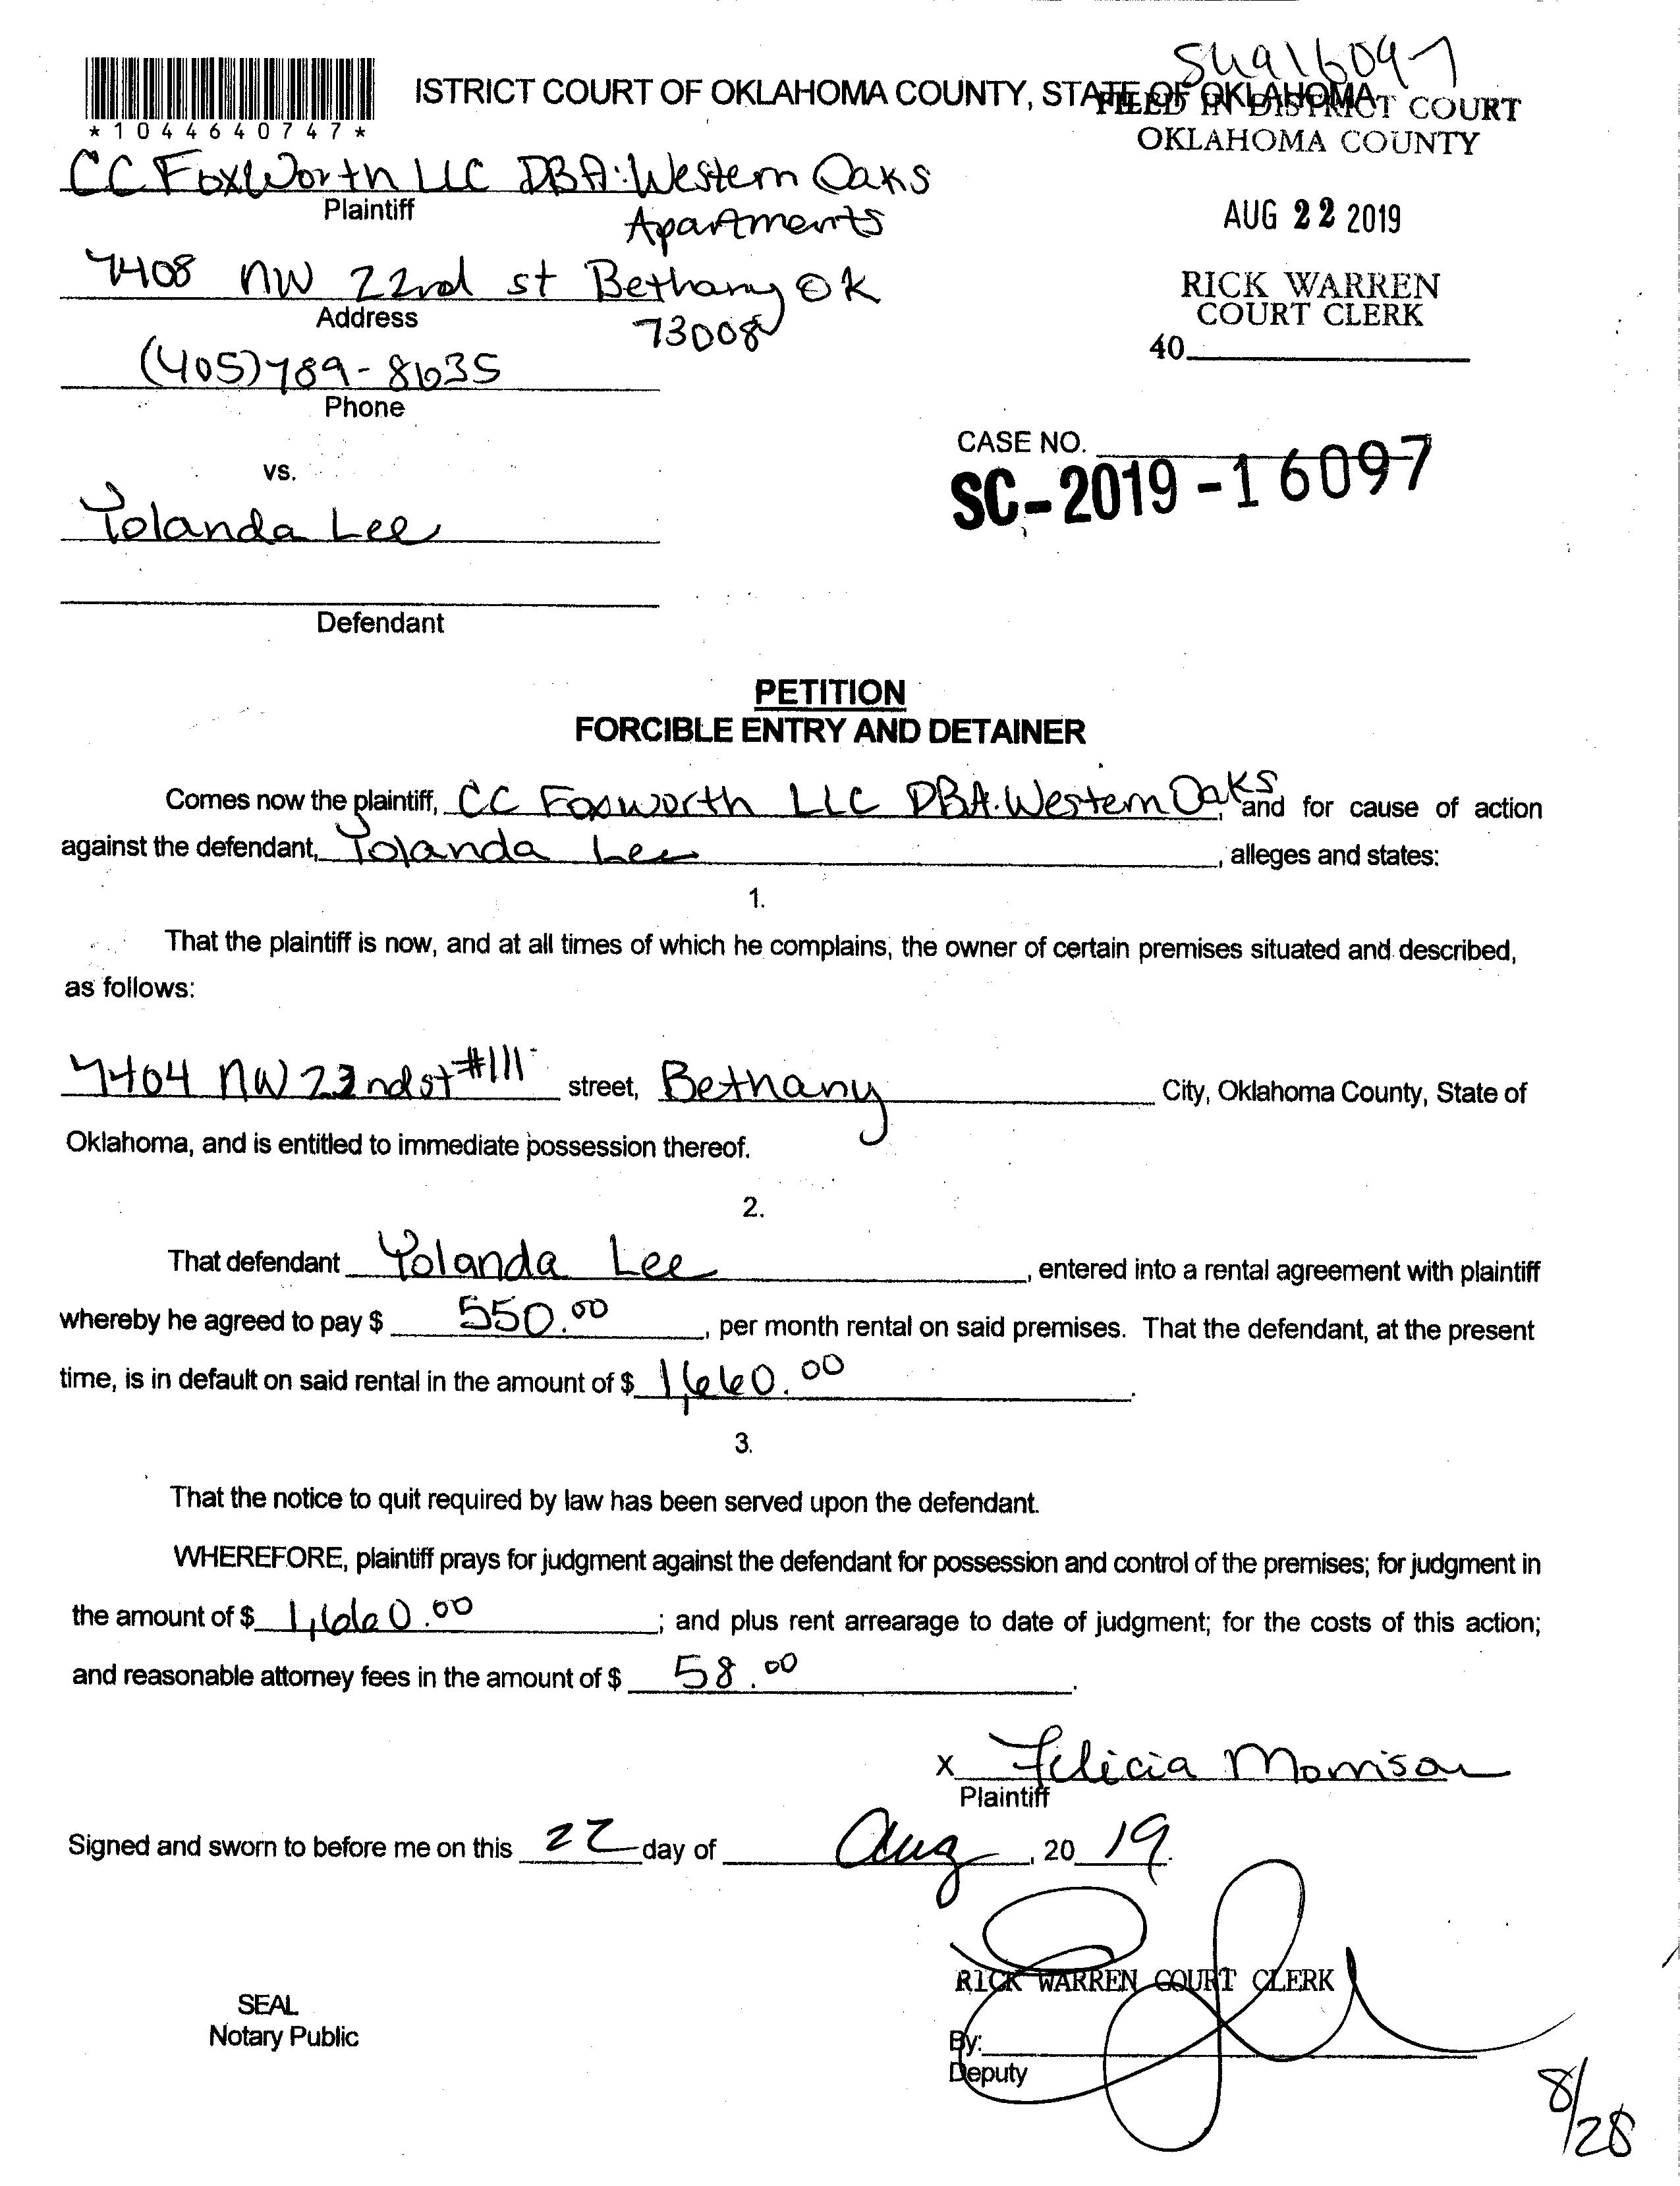 SC1916097
ISTRICT COURT OF OKLAHOMA COUNTY, STATE OF OKLAHOMA
FILED IN DISTRICT COURT
OKLAHOMA COUNTY
*1044640747*
CC FoxWorth LLC DBA: Western Oaks
Plaintiff
Apartments
AUG 22 2019
7408 NW 22nd st Bethany OK
Address
73008
RICK WARREN
COURT CLERK
40
(405)789-8635
Phone
CASE NO.
SC-2019-16097
vs.
Yolanda Lee
Defendant
PETITION
FORCIBLE ENTRY AND DETAINER
Comes now the plaintiff, CC Foxworth LLC DBA: Western Oaks, and for cause of action
against the defendant, Yolanda Lee, alleges and states:
1.
That the plaintiff is now, and at all times of which he complains, the owner of certain premises situated and described,
as follows:
7404 NW 22nd st #111 street, Bethany City, Oklahoma County, State of
Oklahoma, and is entitled to immediate possession thereof.
2.
That defendant Yolanda Lee, entered into a rental agreement with plaintiff
whereby he agreed to pay $ 550.00, per month rental on said premises. That the defendant, at the present
time, is in default on said rental in the amount of $ 1,660.00.
3.
That the notice to quit required by law has been served upon the defendant.
WHEREFORE, plaintiff prays for judgment against the defendant for possession and control of the premises; for judgment in
the amount of $ 1,660.00; and plus rent arrearage to date of judgment; for the costs of this action;
and reasonable attorney fees in the amount of $ 58.00.
x Felicia Morrison
Plaintiff
Signed and sworn to before me on this 22 day of Aug, 2019.
RICK WARREN COURT CLERK
SEAL
Notary Public
By:
Deputy
8/28